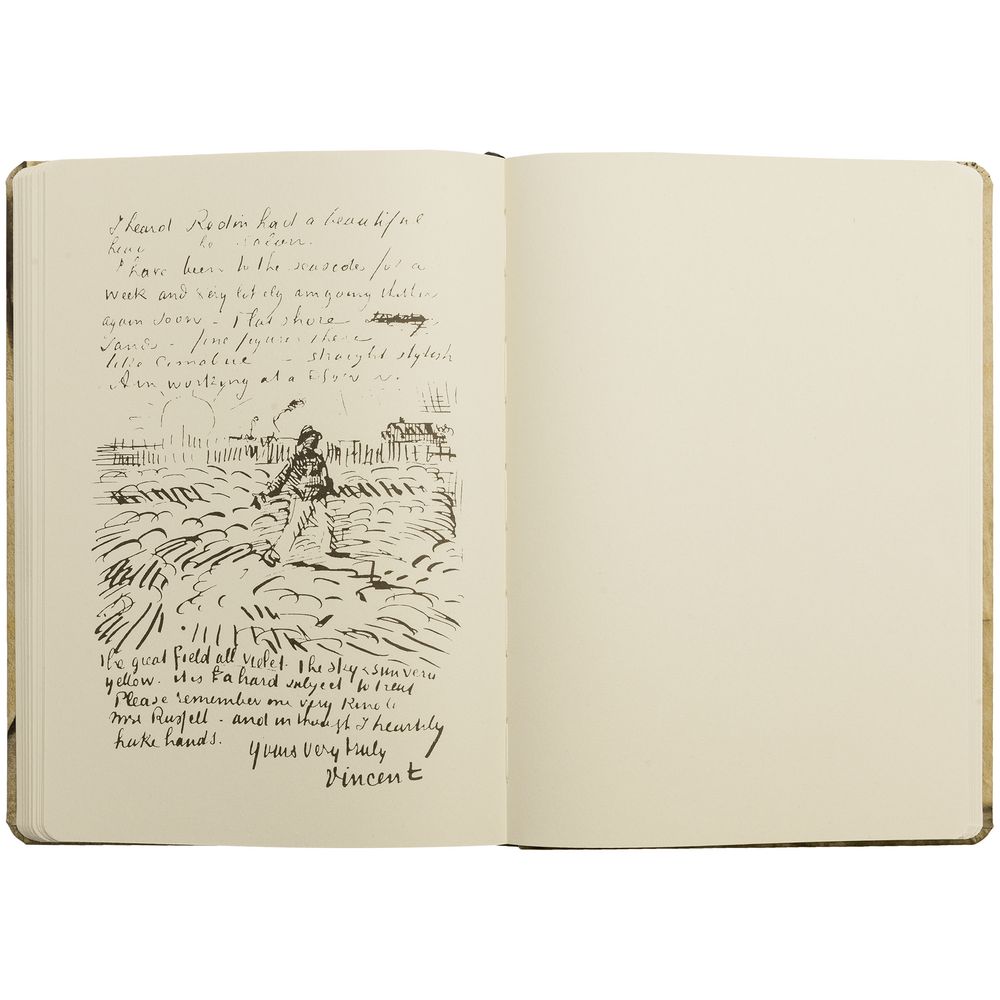 I heard Rodin had a beautiful
salon.
I have been to the seaside for a
week and very likely am going thither
again soon – Flat shore
sands – fine figures there
like Cimabue – straight stylish
Am working at a Sower
The great field all violet. The sky & sun very
yellow. it is a hard subject to treat
Please remember me very kindly
Mrs Russell – and in thought I heartily
hake hands.
Yours very truly
Vincent